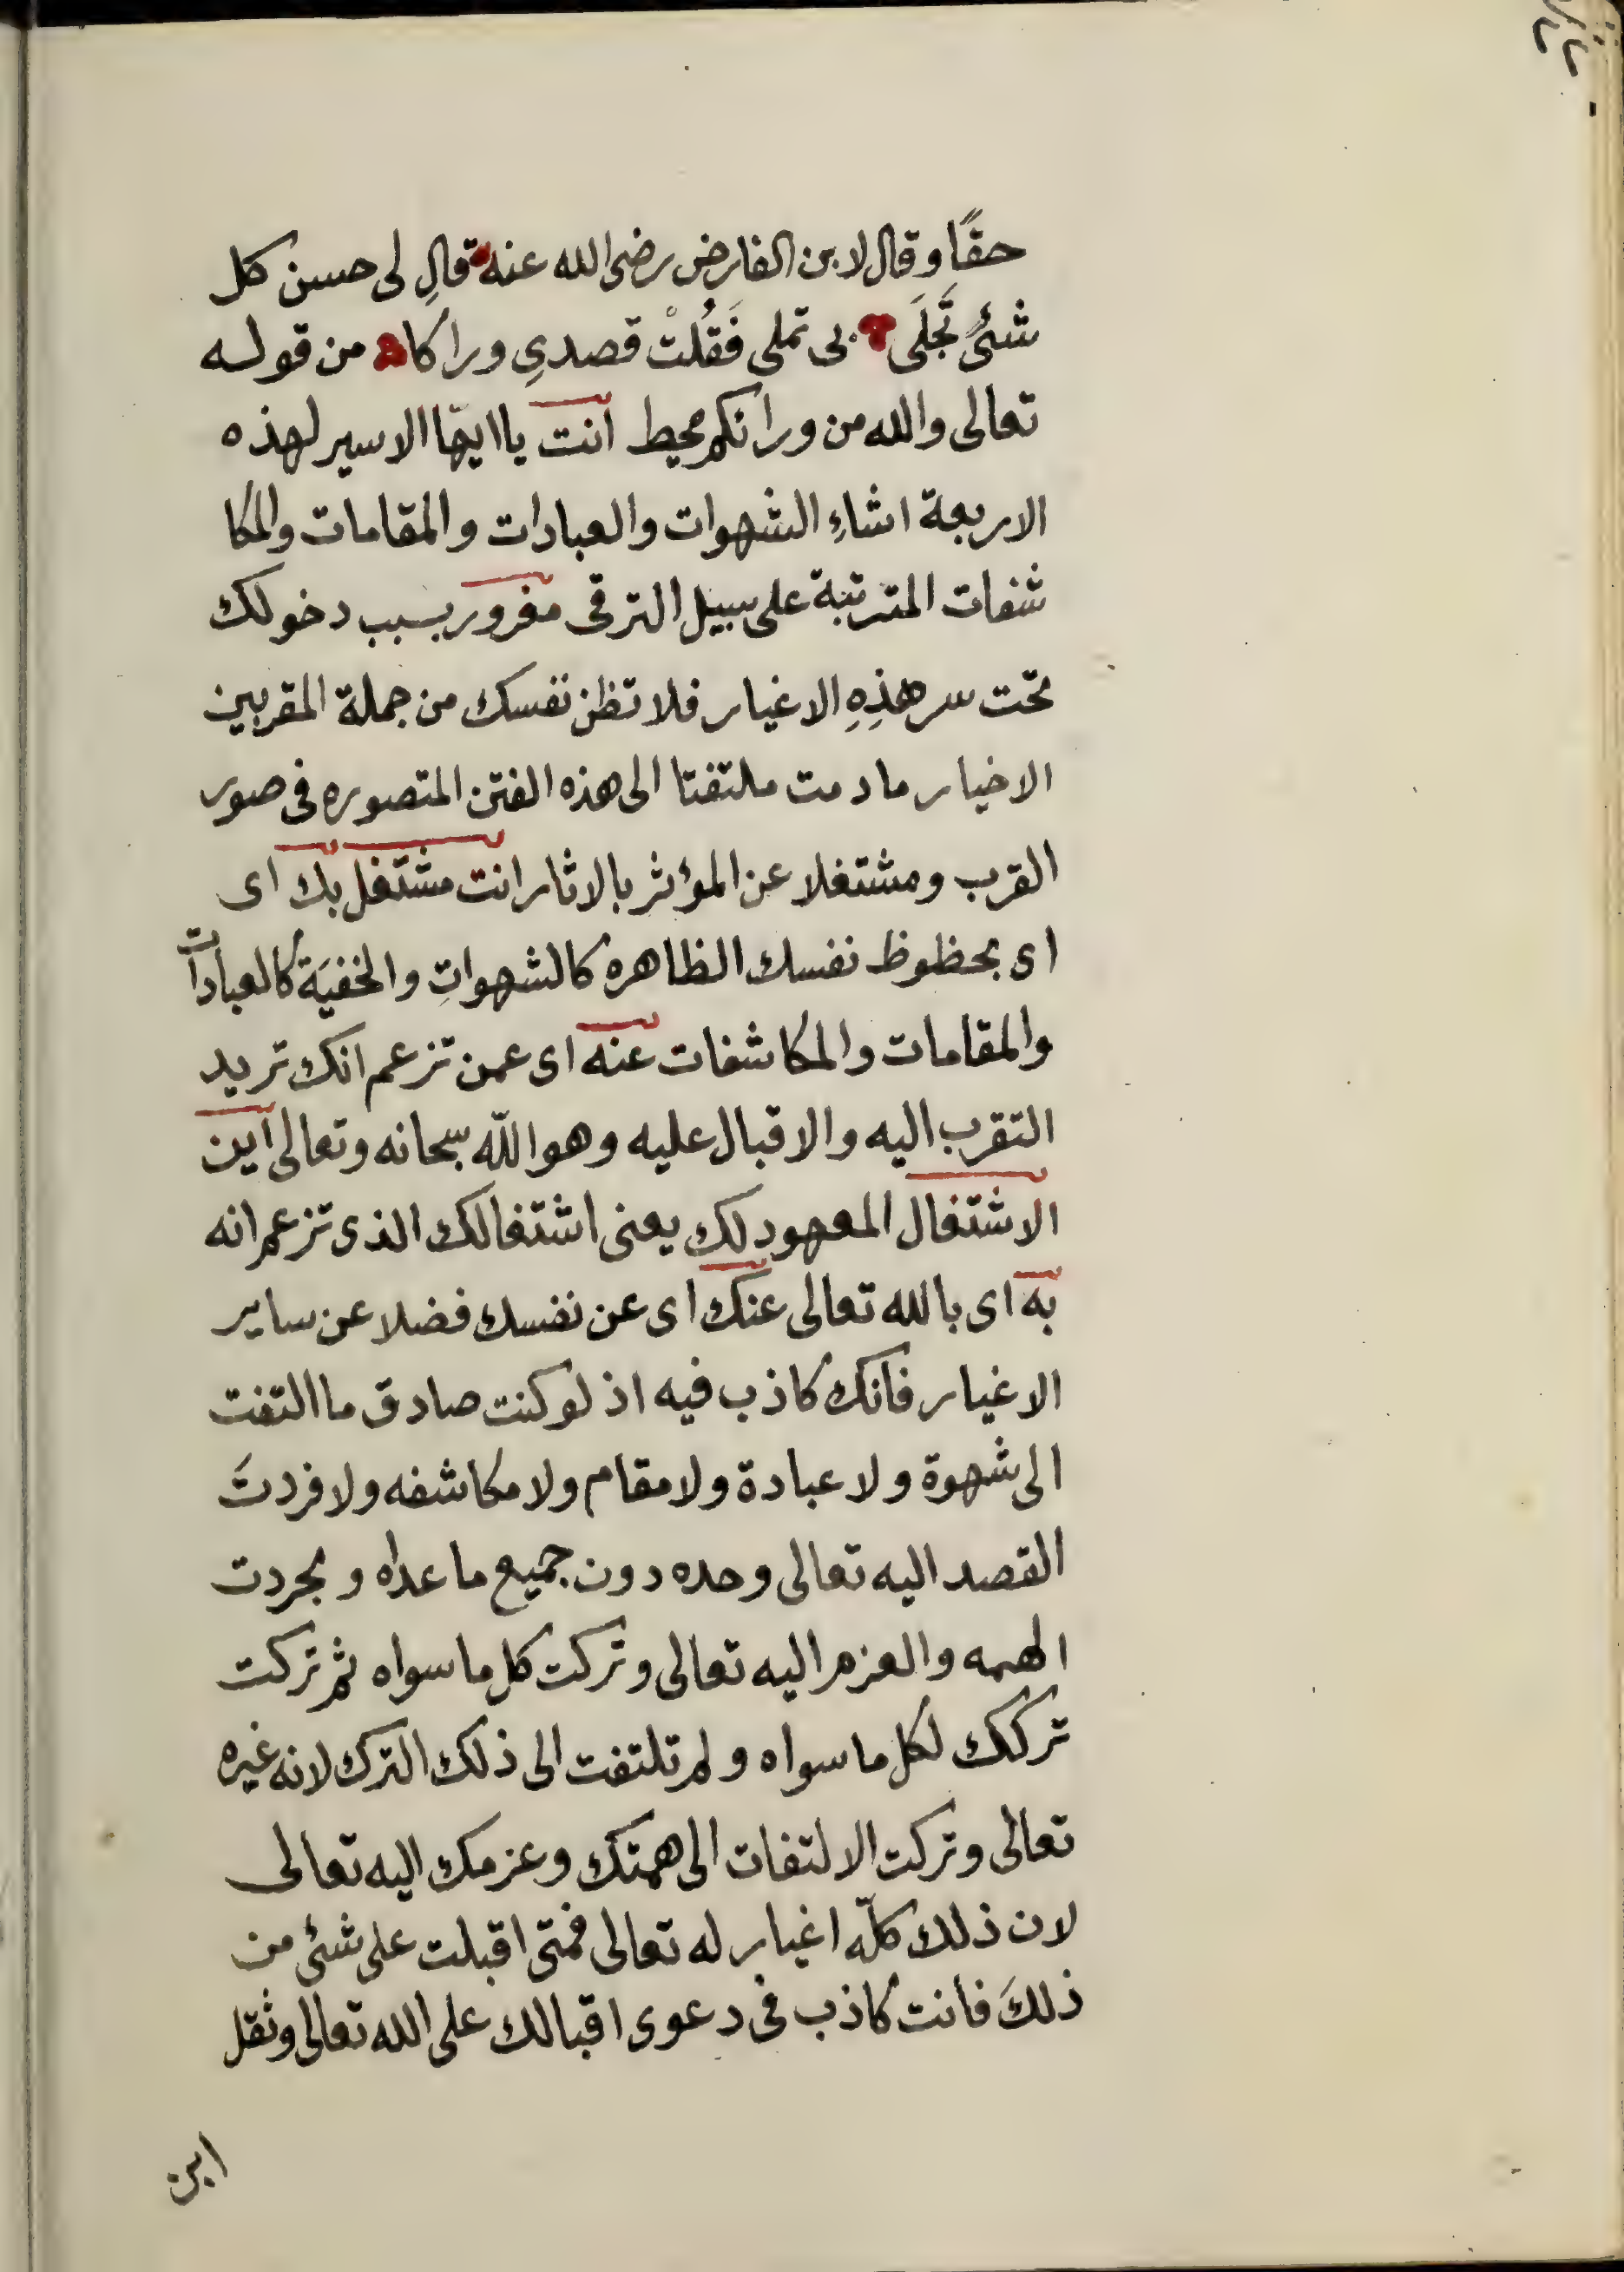 حقًا وقال لابن الفارض رضى الله عنه قال لى حسن كل
شئ تَجَلَى بى تملى فَقُلتْ قصدىِ وراكا من قوله
تعالى والله من ورائكم محيط انت يا ايها الاسير لهذه
الاربعة اشاءِ الشهوات والعبادات والمقامات والمكا
شفات المترتبة على سبيل الترقى مغرور بسبب دخولك
تحت سر هذِهِ الاغيار فلا تظن نفسك من جملة المقربين
الاخيار مادمت ملتفتا الى هذه الفتن المتصوره فى صور
القرب ومشتغلا عن المؤثر بالاثار انت مشتغل بك اى
اى بحظوظ نفسك الظاهره كالشهواتِ والخفيَة كالعبادات
والمقامات والمكاشفات عنه اى عمن تزعم انك تريد
التقرب اليه والاقبال عليه وهو اللّه سبحانه وتعالى اين
الاشتغال المعهود لك يعنى اشتغالك الذى تزعم انه
به اى بالله تعالى عنك اى عن نفسك فضلا عن ساير
الاغيار فانك كاذب فيه اذ لو كنت صادق ما التفت
الى شهوة ولا عبادة ولا مقام ولا مكاشفه ولا فردتَ
القصد اليه تعالى وحده دون جميع ما عداه وبجردت
الهمه والعزم اليه تعالى وتركت كل ما سواه ثم تركت
تركك لكل ما سواه ولم تلتفت الى ذلك الترك لانه غيره
تعالى وتركت الالتفات الى همتك وعزمك اليه تعالى
لان ذلك كلّه اغيار له تعالى فمتى اقبلت على شئ من
ذلكَ فأنت كاذب فى دعوى اقبالك على الله تعالى ونقل
ابن